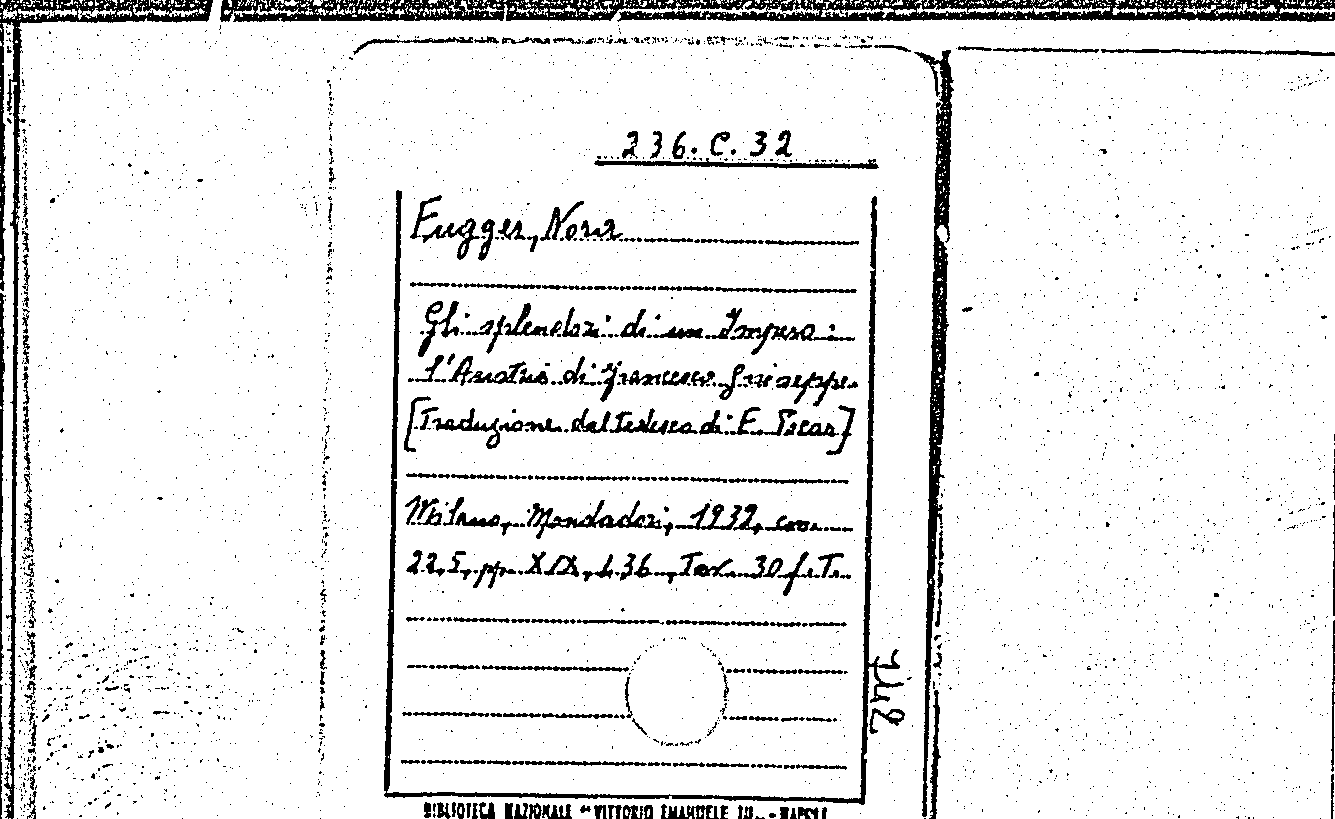 236. C. 32
Fugger, Nora
Gli splendori di un Impero :
l'Austria di Francesco Giuseppe.
[Traduzione dal Tedesco di E. Pocar]
Milano, Mondadori, 1932, cm.
22,5, pp. XIX, 436, Tav. 30 f. T.
BIBLIOTECA NAZIONALE "VITTORIO EMANUELE III" - NAPOLI